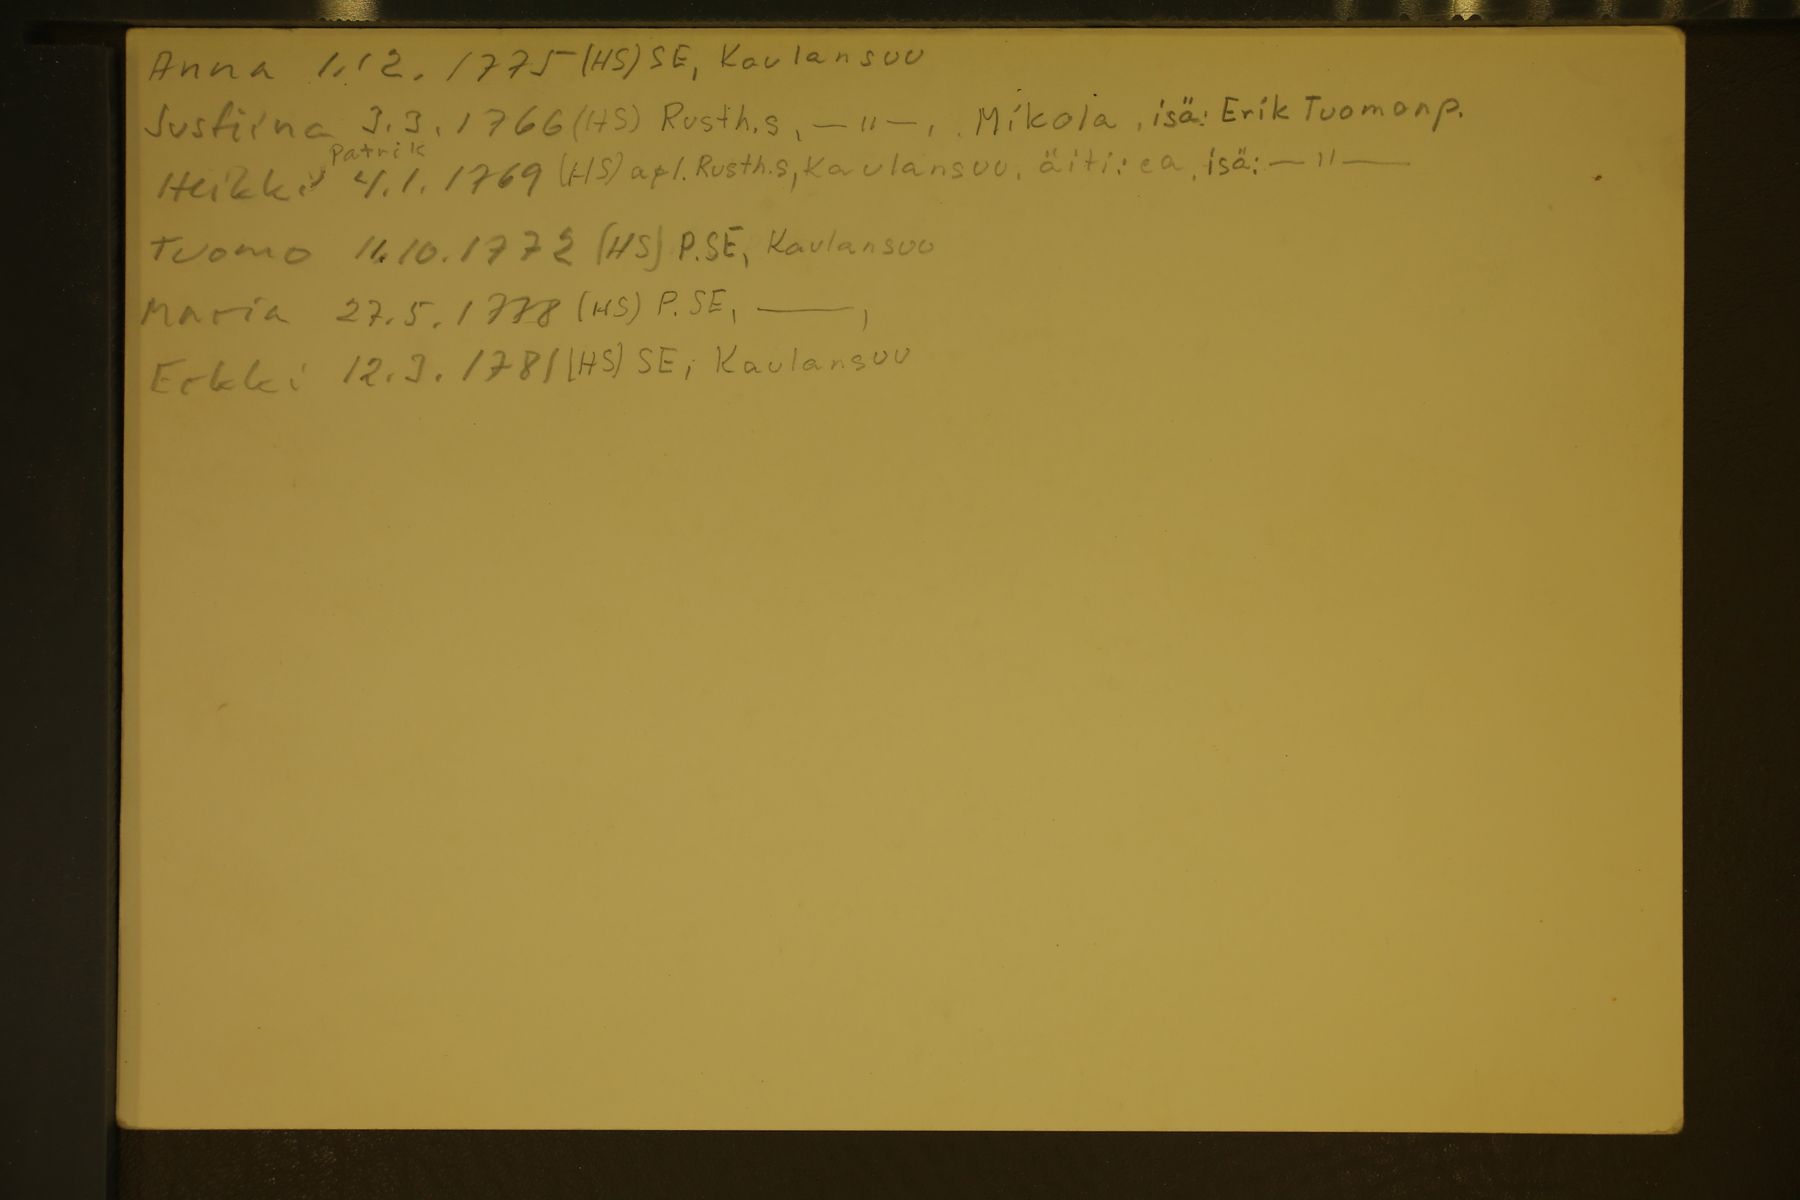 Anna 1.12. 1775 (HS) SE, Kaulansuu
Justiina 3.3.1766 (HS) Rusth.s, —"—, . Mikola, isä: Erik Tuomanp.
Patrik
Heikki 4.1.1769 (HS) apl. Rusth.s, Kaulansuu, äiti: ea, isä: —"—
Tuomo 11.10.1772 (HS) P.SE, Kaulansuu
Maria 27.5.1778 (HS) P.SE, ——,
Erkki 12.3.1781 (HS) SE, Kaulansuu